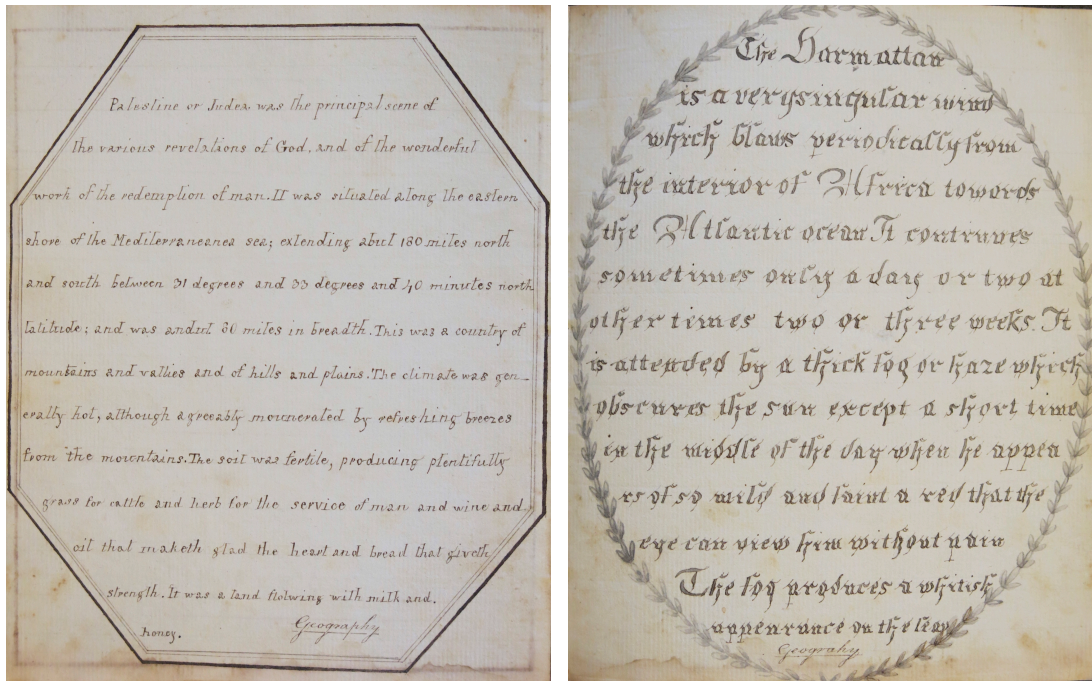 Palestine or Judea was the principal scene of
the various revelations of God, and of the wonderful
work of the redemption of man. It was situated along the eastern
shore of the Mediterraneanea sea; extending abut 180 miles north
and south between 31 degrees and 33 degrees and 40 minutes north
latitude; and was andut 80 miles in breadth. This was a country of
mountains and vallies and of hills and plains. The climate was gen-
erally hot, although agreeably mounerated by refreshing breezes
from the mountains. The soil was fertile, producing plentifully
grass for cattle and herb for the service of man and wine and
oil that maketh glad the heart and bread that giveth
strength. It was a land flolwing with milk and.
honey.
Geography
The Harmattan
is a very singular wind
which blows periodically from
the interior of Africa towords
the Atlantic ocean It continues
sometimes only a day or two at
other times two or three weeks. It
is attended by a thick fog or haze which
obscures the sun except a short time
in the middle of the day when he appea
rs of so mild and faint a red that the
eye can view him without pain
The fog produces a whitish
appearance on the leav
Geograhy